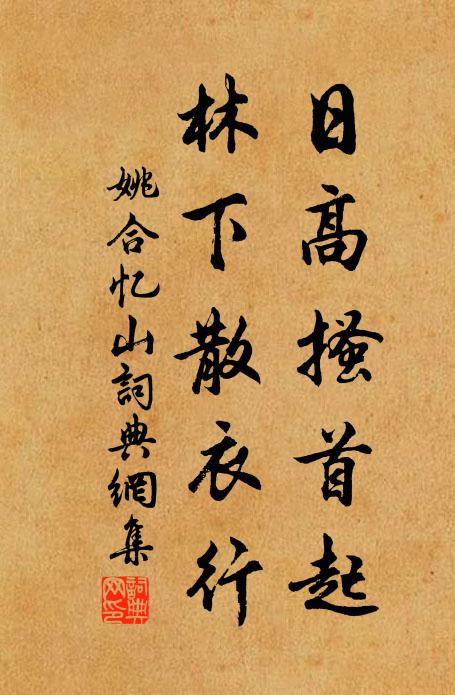 日高搔首起
林下散衣行
姚合忆山詞典網集
詞典网印